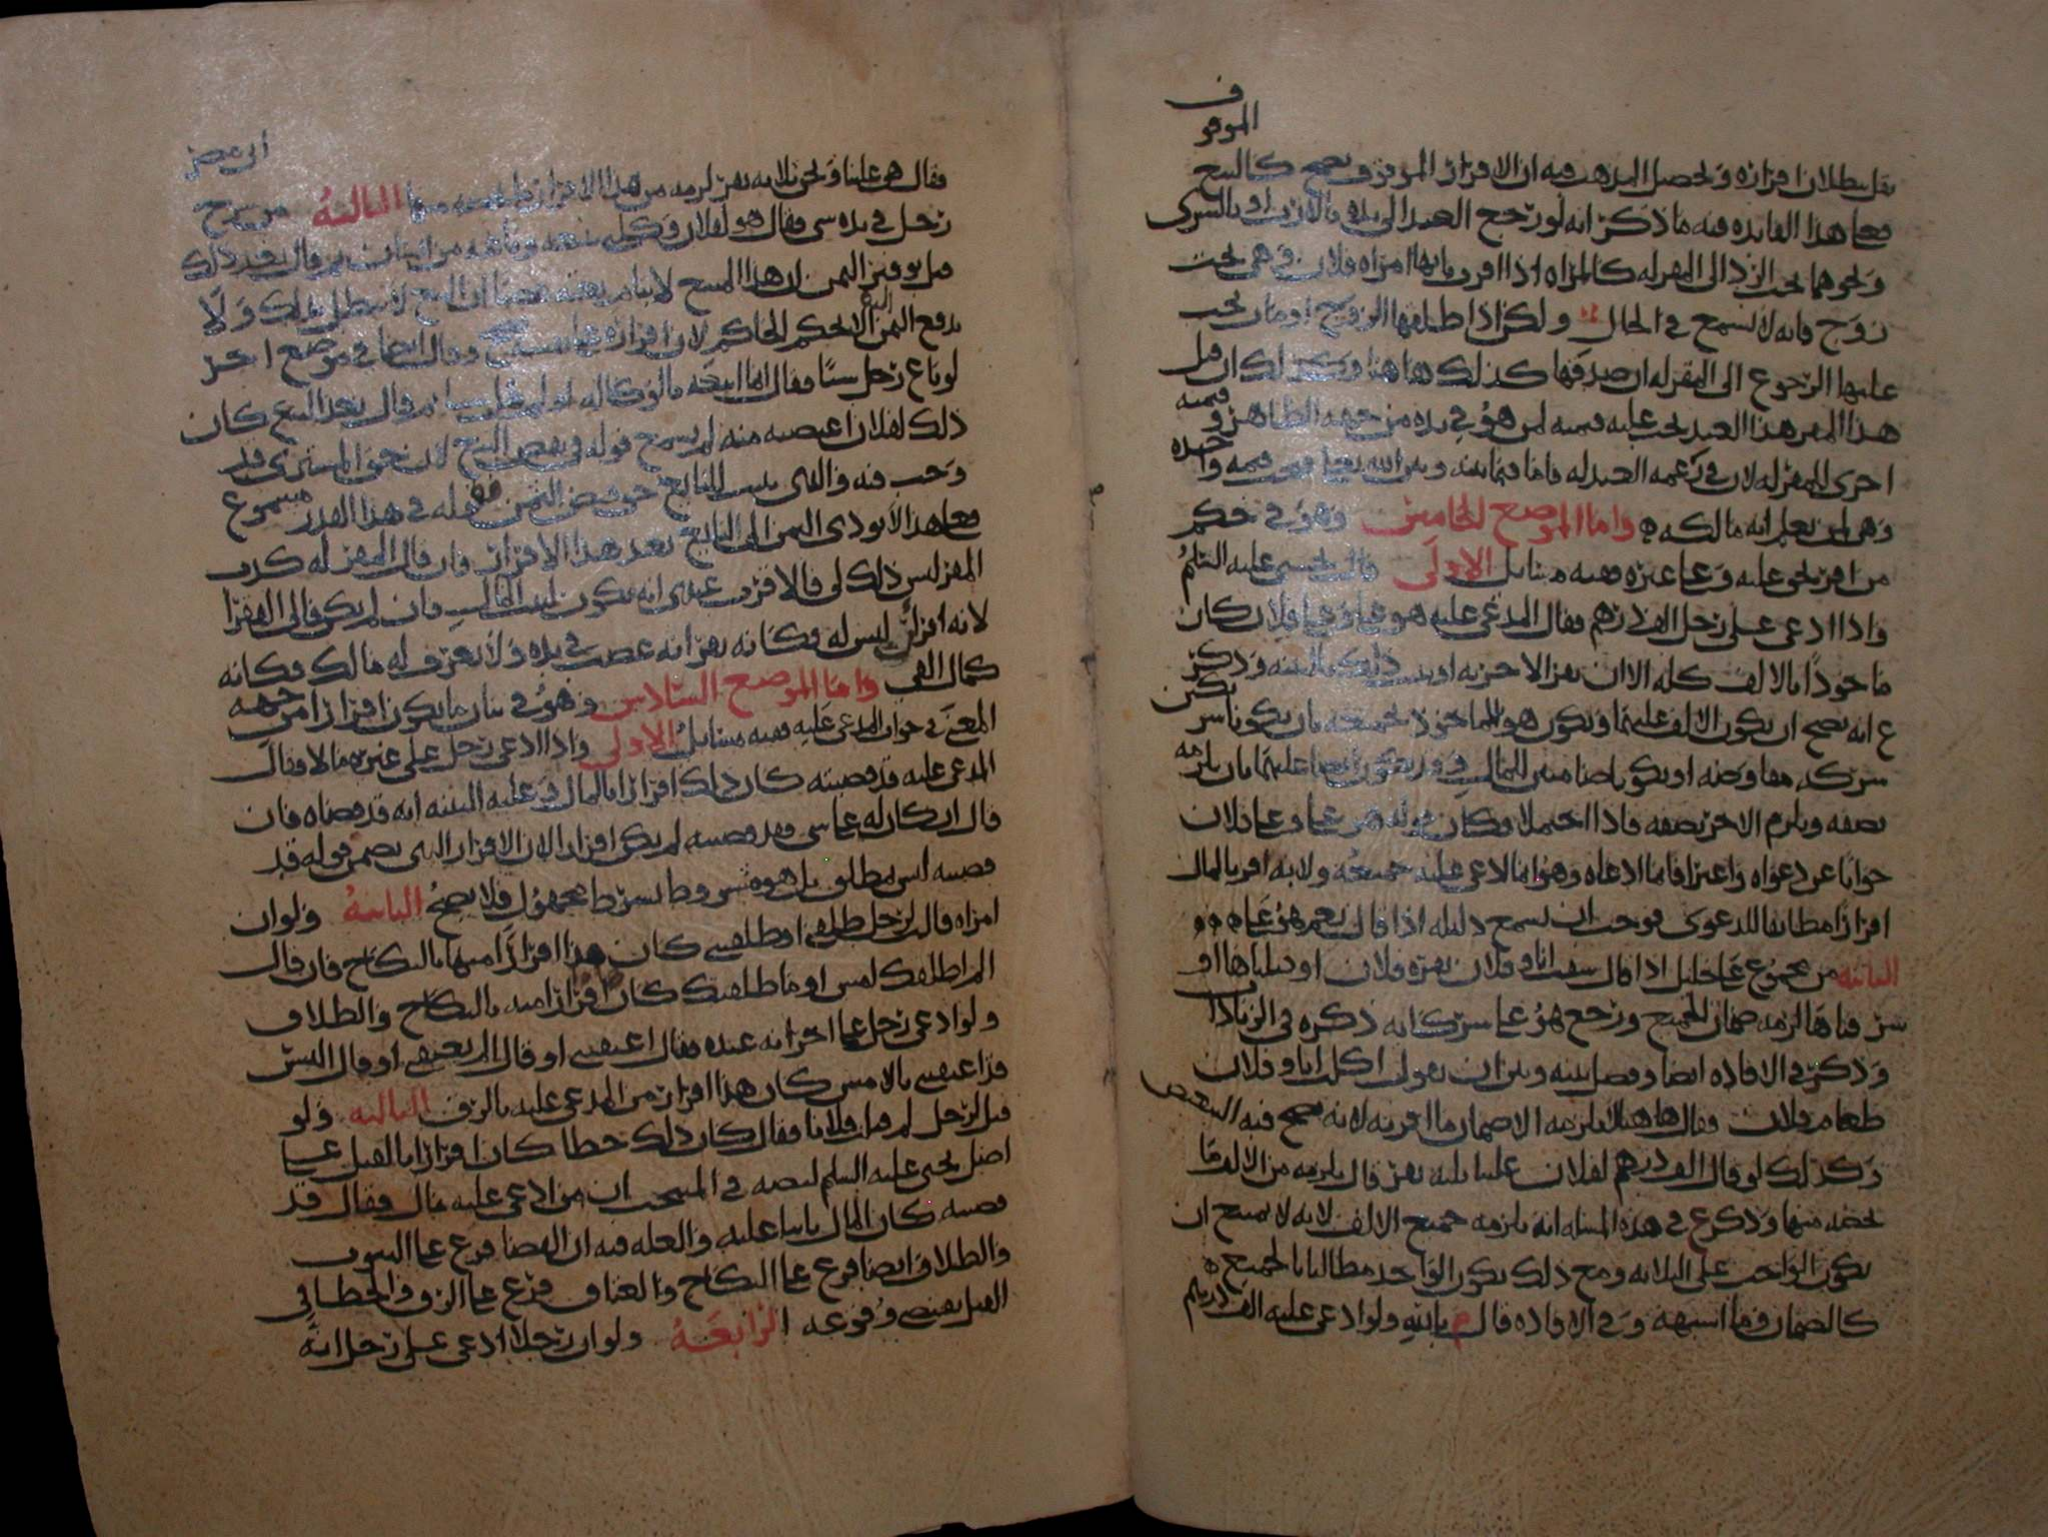 الموقوف
بطلان اقراره وتحصيل المذهب فيه ان الاقرار الموقوف يصح كالبيع
فعلى هذا الفايده فيه ما ذكر انه لو رجع العبد الى يده بالارث او بالشرى
ونحوهما يجب الرد الى المقر له كالمراه اذا اقرت بانها امراه فلان وهي تحت
زوج فانه لا يسمع في الحال ولكن اذا طلقها الزوج او مات يجب
عليها الرجوع الى المقر له ان صدقها كذلك هاهنا وكذلك ان قتل
هذا المقر هذا العبد يجب عليه قيمته لمن هو في يده من جهه الظاهر وقيمه
اخرى للمقر له لان في زعمه العبد له فاما فيما بينه وبين الله تعالى قيمه واحده
وهي لمن يعلم انه مالكه واما الموضع الخامس وهو في حكم
من اقر بحق عليه وعلى غيره ففيه مسايل الاولى قال يحيى عليه السلم
واذا ادعى على رجل الف درهم فقال المدعى عليه هو علي وعلى فلان كان
ماخوذا بالالف كله الا ان يقر الاخر به او يثبت ذلك بالبينه وذكر
ع انه يصح ان يكون الالف عليهما ويكون هو الماخوذ بجميعه بان يكونا شريكين
شركه مفاوضه او يكونا ضامنين للمال وقد يكون ايضا عليهما بان يلزمه
نصفه ويلزم الاخر نصفه فاذا احتملا وكان قوله هو علي وعلى فلان
جوابا عن دعواه واعترافا بما ادعاه وهو انما ادعى عليه جميعه ولانه اقر بالمال
اقرارا مطابقا للدعوى فوجب ان يسمع دليله اذا قال نعم هو علي
الثانيه من مجموع علي خليل اذا قال سقت انا وفلان بقره فلان او قتلناها او
سرقناها لزمه ضمان الجميع ورجع هو على شركائه ذكره في الزيادات
وذكر في الافاده ايضا وفصل بينه وبين ان يقول اكلت انا وفلان
طعام فلان فقال هاهنا لا يلزمه الا ضمان ما اقر به لانه يصح فيه التبعض
وكذلك لو قال الف درهم لفلان علينا ثلثه نفر قال يلزمه من الالف ما
يخصه منها وذكر ع في هذه المساله انه يلزمه جميع الالف لانه لا يمتنع ان
يكون الواجب على الثلاثه ومع ذلك يكون الواحد مطالبا بالجميع
كالضمان وما اشبهه وفي الافاده قال م بالله ولو ادعى عليه الف درهم
فقال هي علينا ونحن ثلاثه نفر لزمه من هذا الاقرار ما يخصه منها الثالثه من شرح ابى مضر
رجل في يده شي فقال هو لفلان وكلني ببيعه
قبل توفير الثمن ان هذا المبيع لا يبطل بذلك ولا
يدفع الثمن الا بحكم الحاكم لان اقراره وقال ايضا في موضع اخر
لو باع رجل شيا فقال انما ابيعه بالوكاله ثم قال بعد البيع كان
ذلك لفلان اغتصبته منه لم يسمع قوله في نقض البيع لان حق المشترى قد
وجب فيه والذي يثبت للبايع حق قبض الثمن فقوله في هذا القدر مسموع
فعلى هذا لا يودى الثمن الى البايع بعد هذا الاقرار فان قال المقر له كذب
المقر ليس ذلك لي فالاقرب عندى انه يكون لبيت المال فان لم يكن فالى الفقرا
لانه اقر انه ليس له فكانه يقر انه غصب في يده ولا يعرف له مالك فكانه
كمال الفي واما الموضع السادس وهو في بيان ما يكون اقرارا من جهه
المعنى في جواب المدعى عليه ففيه مسايل الاولى واذا ادعى رجل على غيره مالا فقال
المدعى عليه قد قضيته كان ذلك اقرارا بالمال وعليه البينه انه قد قضاه فان
قال ان كان له علي شي فقد قضيته لم يكن اقرارا لان الاقرار الذي تضمن قوله قد
قضيته ليس بمطلق بل هو مشروط بشرط مجهول فلا يصح الثانيه ولو ان
امراه قالت لرجل طلقني او طلقتني كان هذا اقرارا منها بالنكاح فان قال
الم اطلقك امس او ما طلقتك كان اقرارا منه بالنكاح والطلاق
ولو ادعى رجل على اخر انه عبده فقال اعتقني او قال الم تعتقني او قال اليس
قد اعتقتني بالامس كان هذا اقرارا من المدعى عليه بالرق الثالثه ولو
قيل لرجل لم قتلت فلانا فقال كان ذلك خطا كان اقرارا بالقتل على
اصل يحيى عليه السلم لنصه في المنتخب ان من ادعى عليه مال فقال قد
قضيته كان المال ثابتا عليه والعله فيه ان القضا فرع على الثبوت
والطلاق ايضا فرع على النكاح والعتاق فرع على الرق والخطا في
القتل يقتضي وقوعه الرابعه ولو ان رجلا ادعى على رجل انه